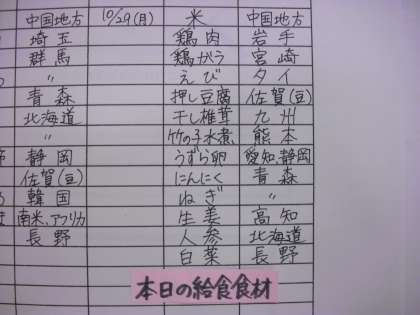 中国地方 10/29(月) 米 中国地方
埼玉 鶏肉 岩手
群馬 鶏がう 宮崎
〃 えび タイ
青森 押し豆腐 佐賀(豆)
北海道 干し椎茸 九州
〃 竹の子水煮 熊本
静岡 うずら卵 愛知、静岡
佐賀(豆) にんにく 青森
韓国 ねぎ 〃
南米、アフリカ 生姜 高知
長野 人参 北海道
白菜 長野
本日の給食食材